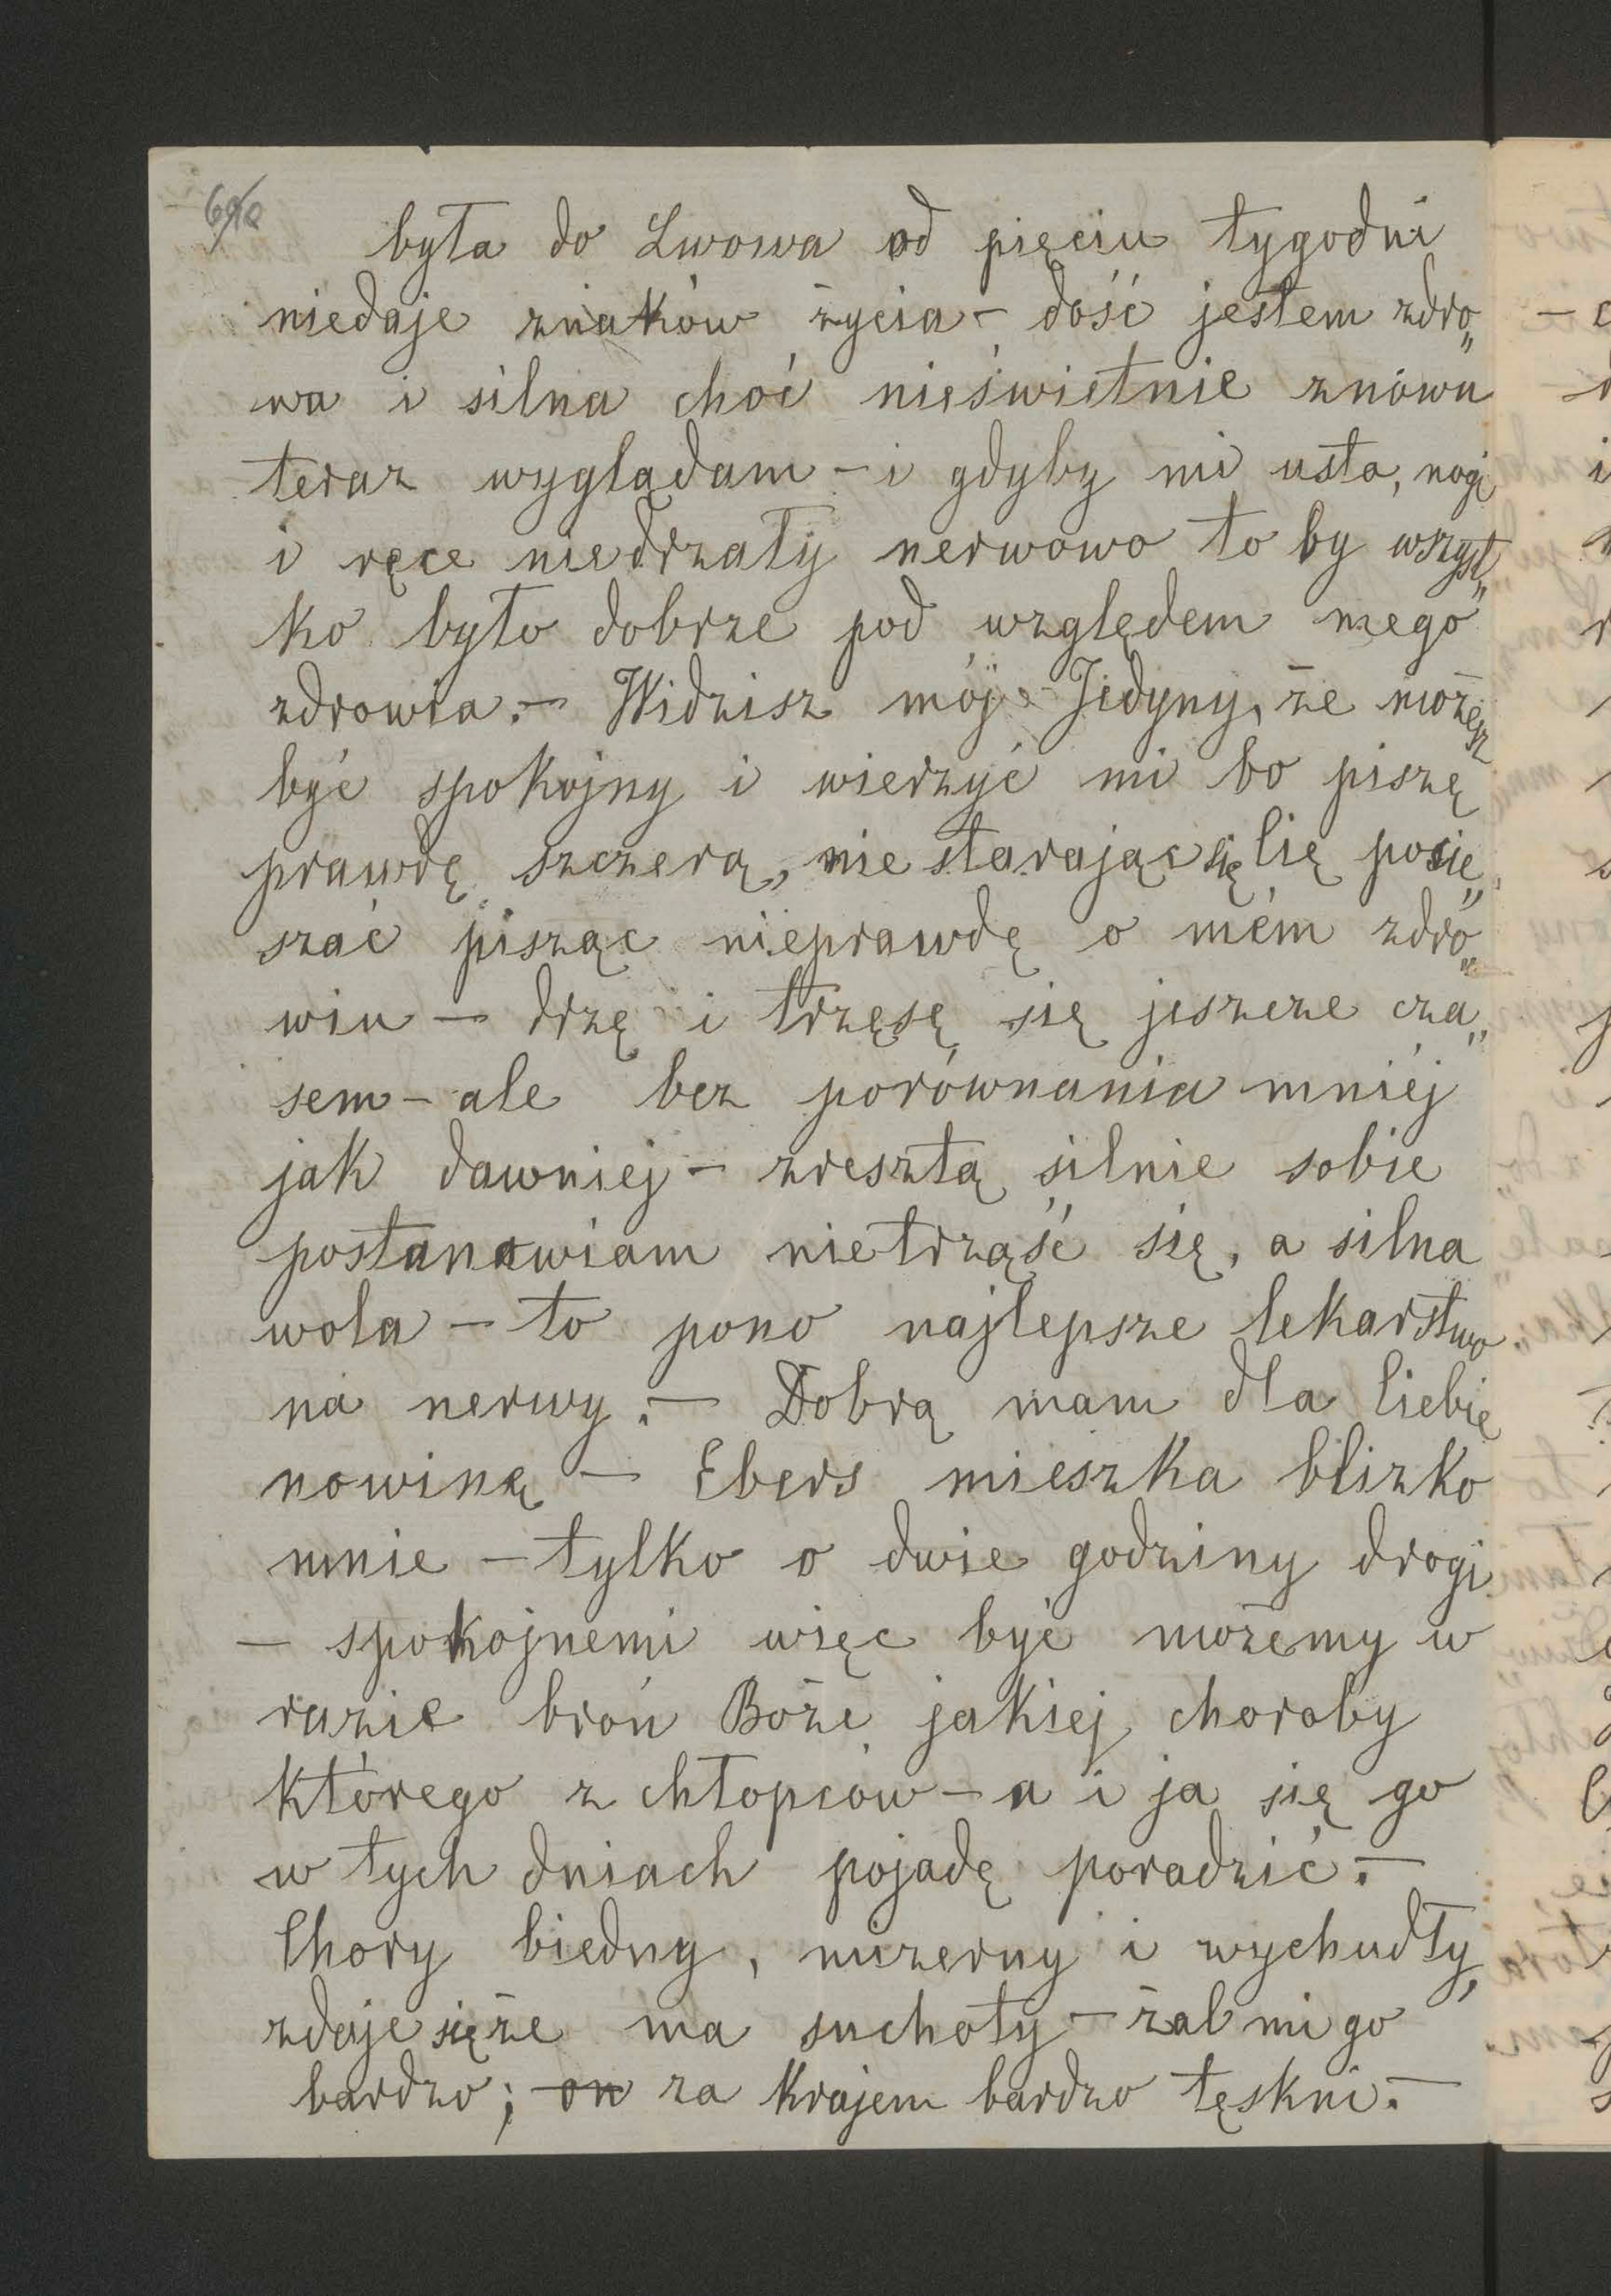 była do Lwowa od pięciu tygodni
niedaje znaków życia – dość jestem zdro„
wa i silna choć nieświetnie znówu
teraz wyglądam – i gdyby mi usta, nogi
i ręce niedrżały nerwowo to by wszyst„
ko było dobrze pod względem mego
zdrowia. – Widzisz mój Jedyny, że możesz
być spokojny i wierzyć mi bo piszę
prawdę szczerą, nie starając się Cię pocie„
szać pisząc nieprawdę o mém zdro„
wiu – drżę i trzęsę się jeszcze cza„
sem – ale bez porównania mniéj
jak dawniej – zresztą silnie sobie
postanawiam nietrząść się, a silna
wola – to pono najlepsze lekarstwo
na nerwy. – Dobrą mam dla Ciebie
nowinę – Ebers mieszka blizko
mnie – tylko o dwie godziny drogi
– spokojnemi więc być możemy w
razie broń Boże jakiej choroby
którego z chłopców – a i ja się go
w tych dniach pojadę poradzić. –
Chory biedny, mizerny i wychudły,
zdaje się że ma suchoty – żal mi go
bardzo; on za krajem bardzo tęskni. –